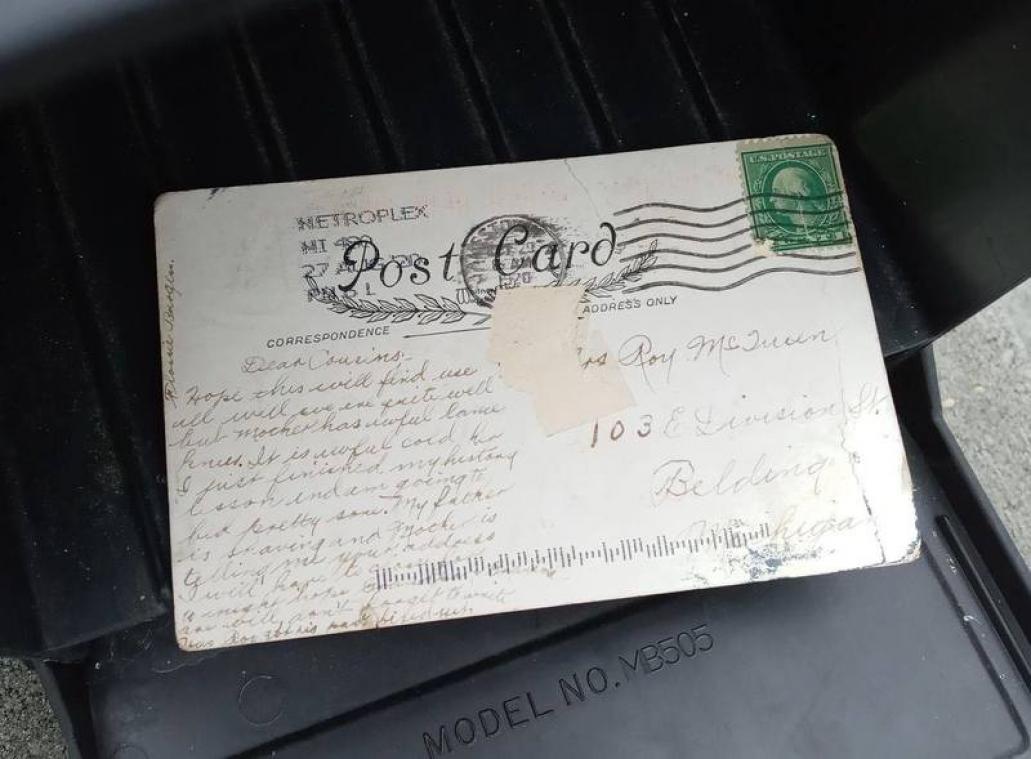 U.S. POSTAGE
METROPLEX
MI 480
27
Post Card
CORRESPONDENCE
ADDRESS ONLY
Dear Cousins:-
Hope this will find use
all well we are quite well
but Mother has awful lame
knees. It is awful cold here
I just finished my history
lesson and am going to
bed pretty soon. My father
is shaving and Mother is
telling me your address
I will have to
hope
are well don't forget to write
rs Roy McQueen
103 E Division St.
Belding
higa
MODEL NO. MB505